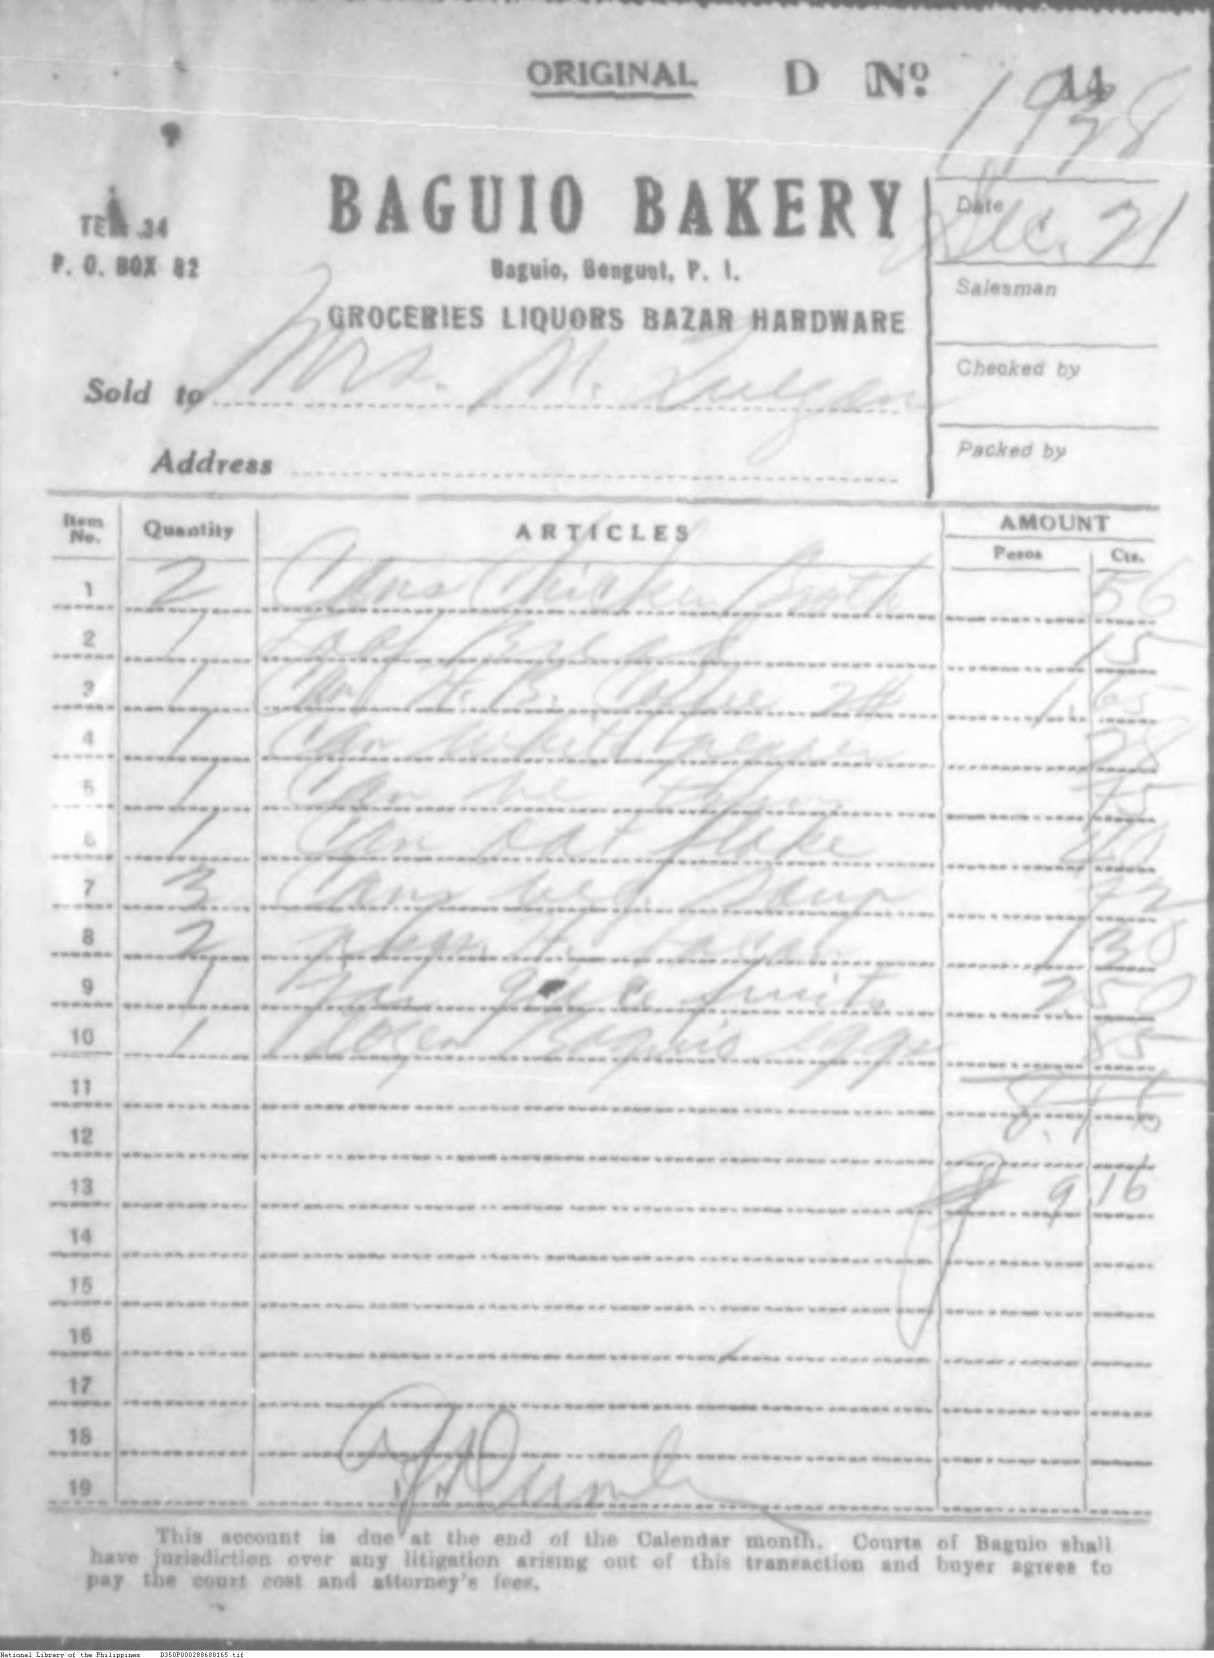 ORIGINAL D No. 44
1938
TEL. 34
BAGUIO BAKERY
Date Dec. 21
P. O. BOX 82
Baguio, Benguet, P. I.
Salesman
GROCERIES LIQUORS BAZAR HARDWARE
Checked by
Sold to Mrs. M.
Packed by
Address
Item No. Quantity ARTICLES AMOUNT
Pesos Cts.
1 2 Cans Chicken Broth 56
2 1 Loaf Bread 15
3 1 Can H. B. Coffee 2# 1 65
4 1 Can 28
5 1 Can 75
6 1 Can oat flake 40
7 3 Cans veg. Soup 72
8 2 bacon 1 30
9 1 fruits 2 50
10 1 Dozen Baguio eggs 85
11
12
13 9.16
14
15
16
17
18
19
This account is due at the end of the Calendar month. Courts of Baguio shall
have jurisdiction over any litigation arising out of this transaction and buyer agrees to
pay the court cost and attorney's fees.
National Library of the Philippines D350P000288680165.tif